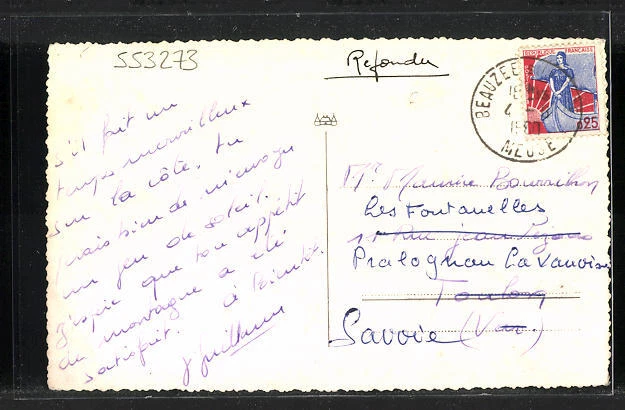 553273
Refondu
REPUBLIQUE FRANÇAISE
0,25
BEAUZEE
18
4
MEUSE
S'il fait un
temps merveilleux
sur la côte. Tu
vrais bien de
un peu de soleil.
J'espère que ton appétit
de montagne a été
satisfait. à Bientôt.
Mr Maurice
Les Fontanelles
11 Rue Jean
Pralognan La Vanoise
Toulon
Savoie (Var)